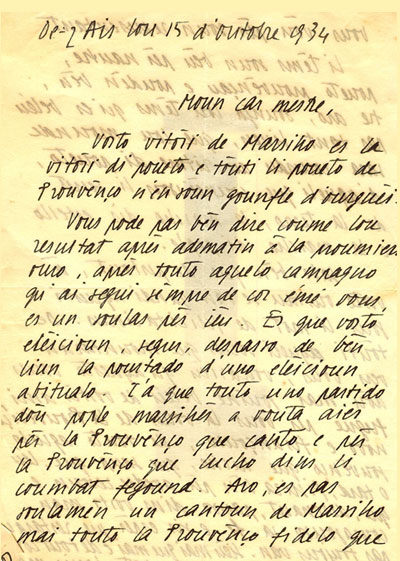 De-z Ais lou 15 d'outobre 1934
Moun car mestre,
Vosto vitòri de Marsiho es la
vitòri di pouèto e tóuti li pouèto de
Prouvènço n'en soun gounfle d'ourguei.
Vous pode pas bèn dire coume lou
resultat après adematin à la proumiero
ouro, après touto aquelo campagno
qu'ai segui sèmpre de cor emé vous,
es un soulas pèr iéu. Es que vosto
eleicioun, segur, despasso de bèn
liuen la pourtado d'uno eleicioun
abitualo. I'a que touto uno partido
dóu pople marsihés a vouta aièr
pèr la Prouvènço que canto e pèr
la Prouvènço que lucho dins li
coumbat fegound. Aro, es pas
soulamen un cantoun de Marsiho
mai touto la Prouvènço fidèlo que